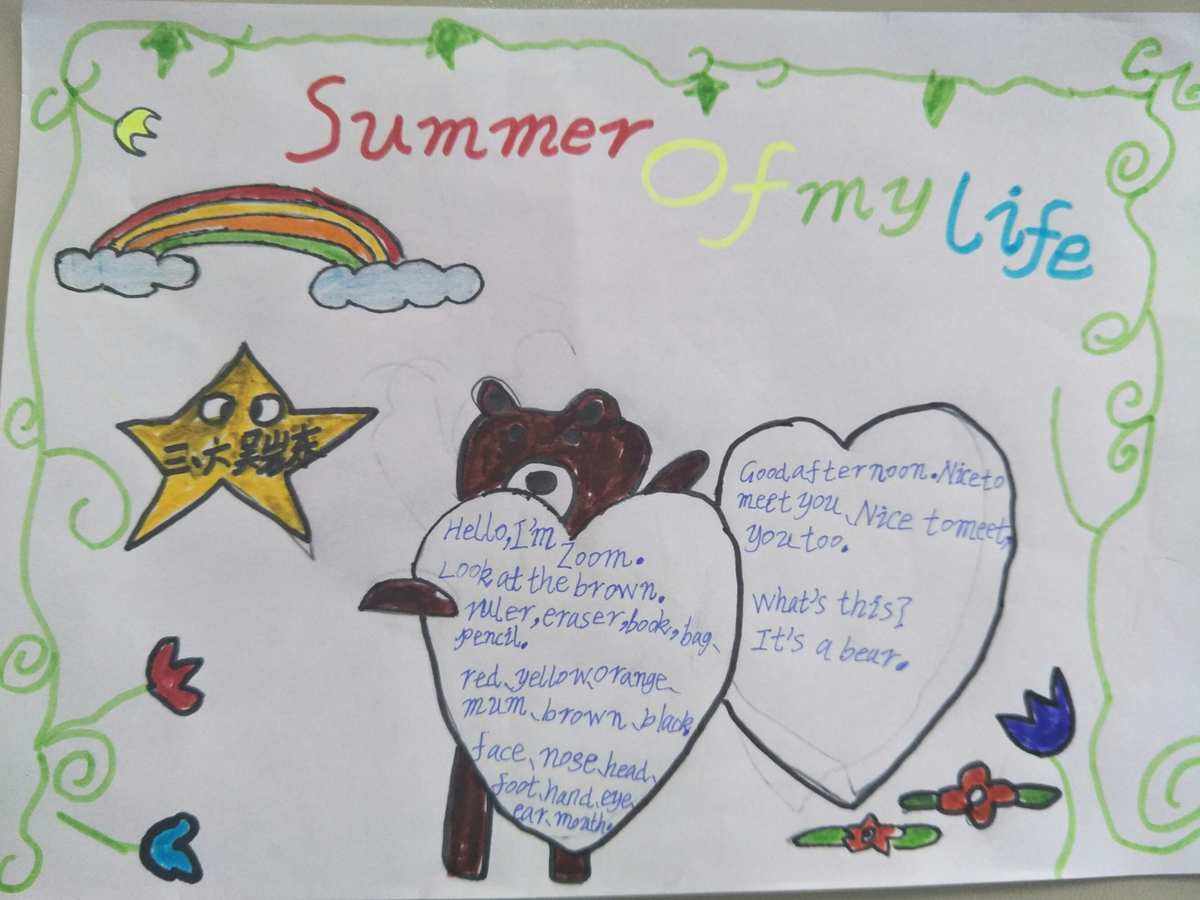 Summer Of my life
三、六 吴岩
Hello, I'm Zoom.
Look at the brown.
ruler, eraser, book, bag、
pencil.
red、yellow、orange、
mum、brown、black
face、nose、head、
foot、hand、eye、
ear、mouth.
Good afternoon. Nice to
meet you、Nice to meet,
you too.
What's this?
It's a bear.